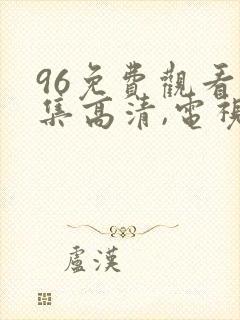 96免費觀看
集高清,電視
盧漢